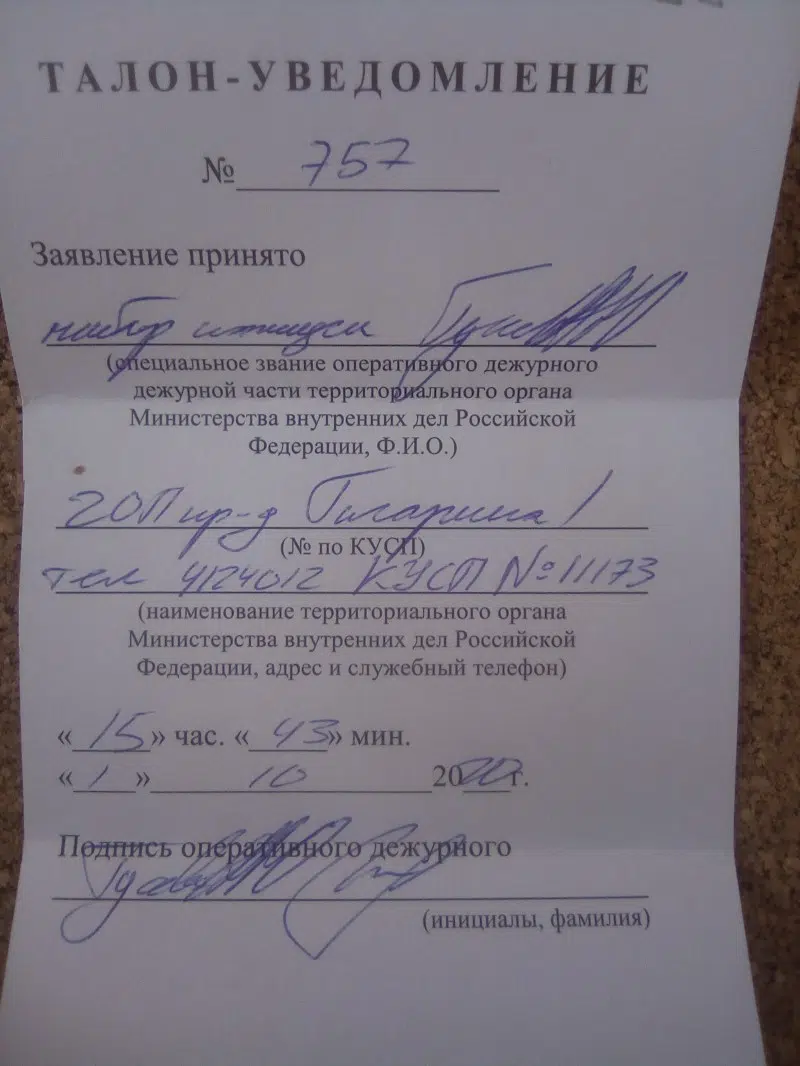 ТАЛОН-УВЕДОМЛЕНИЕ
№ 757
Заявление принято
майор полиции
(специальное звание оперативного дежурного
дежурной части территориального органа
Министерства внутренних дел Российской
Федерации, Ф.И.О.)
20П пр-д Гагарина 1
(№ по КУСП)
тел 4124012 КУСП №11173
(наименование территориального органа
Министерства внутренних дел Российской
Федерации, адрес и служебный телефон)
«15» час. «43» мин.
«1» 10 2020г.
Подпись оперативного дежурного
(инициалы, фамилия)